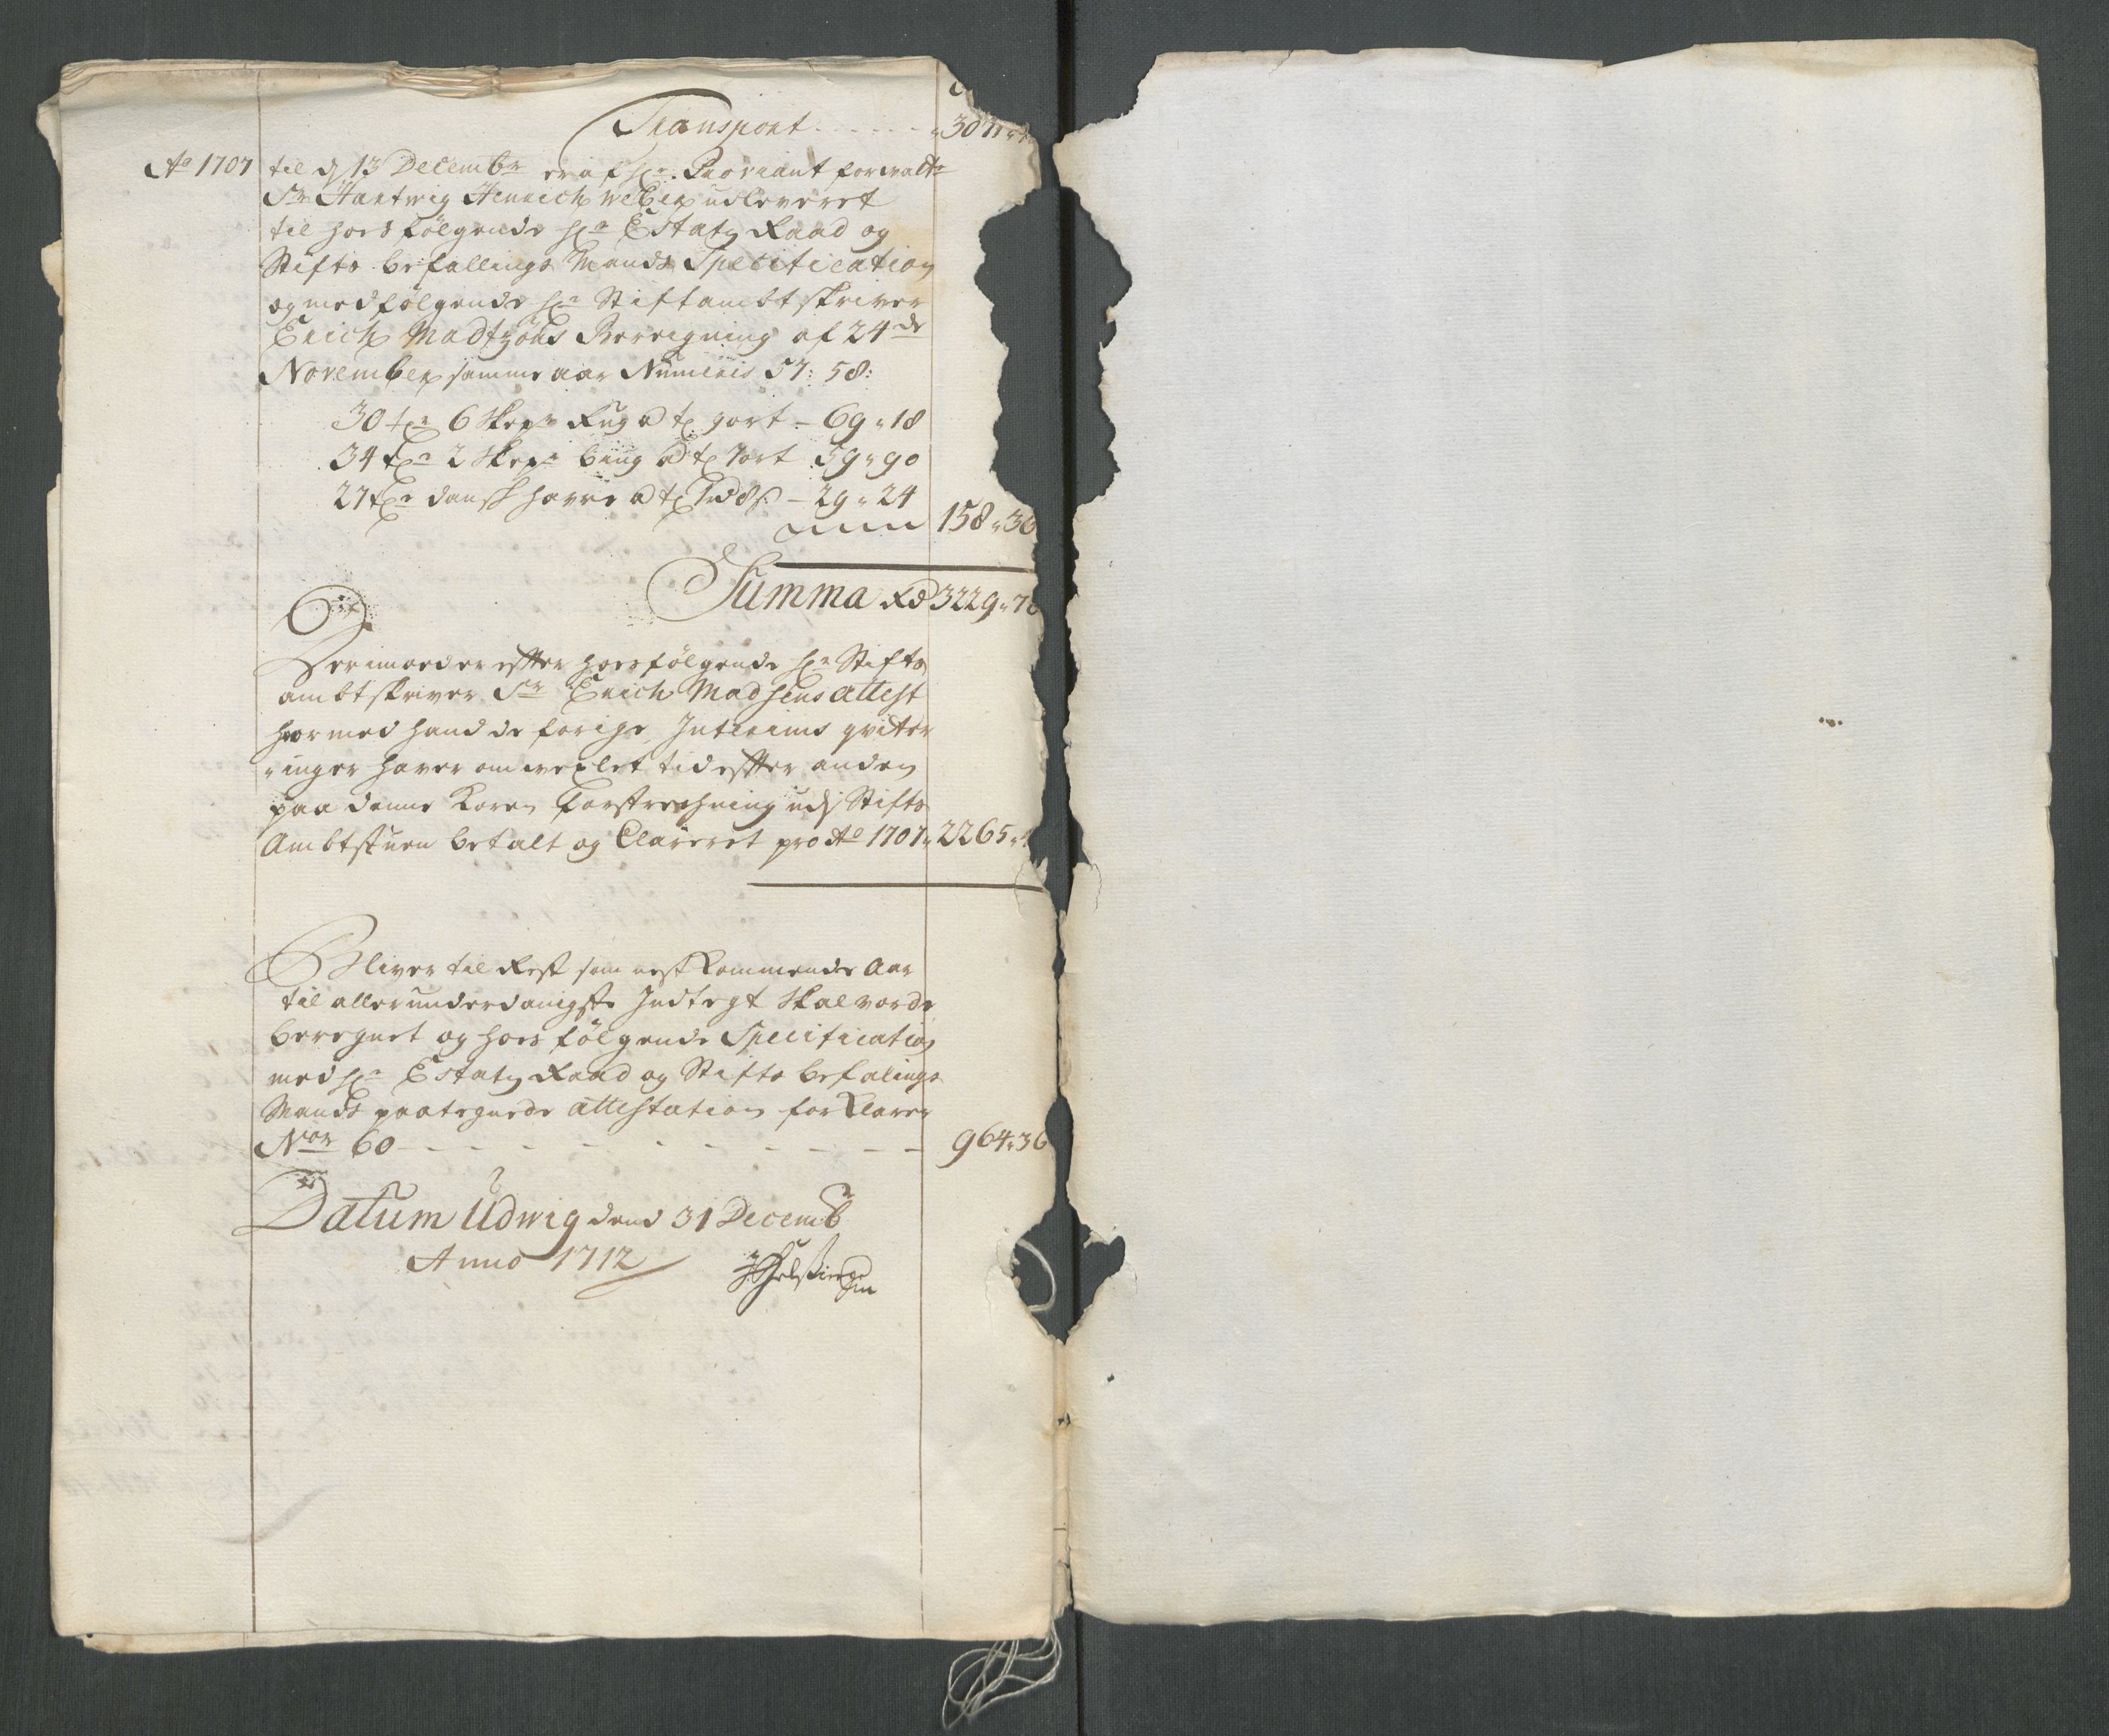 Transport - - - - - " 3071 "
Ao 1707 til d 13 Decembr er af hr. Proviant forvaltr
Sr Hartwig Henrich Weber udleveret
til hos følgende hr Estatz Raad og
Stifts befallings Mands Specification
og medfølgende hr Stiftambtskriver
Erich Madtzøns Beregning af 24de
November samme aar Numeris 57: 58:
30 tr 6 Skepr Rug a t 9 ort - 69 " 18
34 tr 2 Skepr biug a t 7 ort 59 " 90
27 tr dansk havre a t 1 rd 8 s - 29 " 24
158 " 36
Summa Rd 3229 " 7
Derimoed er effter hosfølgende hr Stifts
ambtskriver Sr Erich Madsens attest
hvormed hand de forige Interims qviter
"inger haver omvexlet tid effter anden
paa denne Korn Forstrechning udj Stifts
Ambtstuen betalt og Clareret pro Ao 1707 " 2265 "
Bliver til Rest som nest Kommende Aar
til allerunderdanigste Indtegt skal vorde
beregnet og hos følgende Specification
med hr Estatz Raad og Stifts befalings
Mands paategnede attestation forklarer
Nor 60 - - - - - - - - - 964 " 36
Datum Udwig dend 31 Decembr
Anno 1712